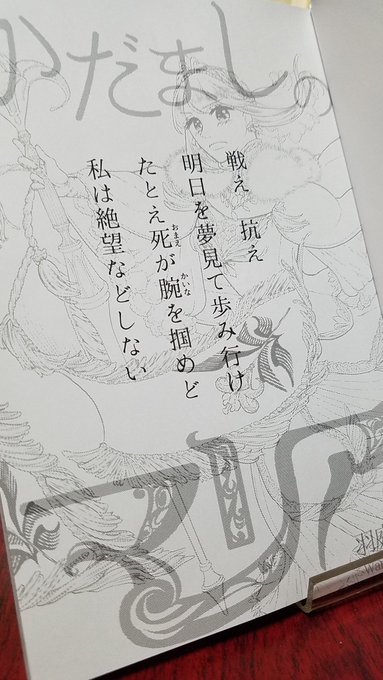 かだましの
戦え 抗え
明日を夢見て歩み行け
たとえ死が腕を掴めど
おまえ
かいな
私は絶望などしない